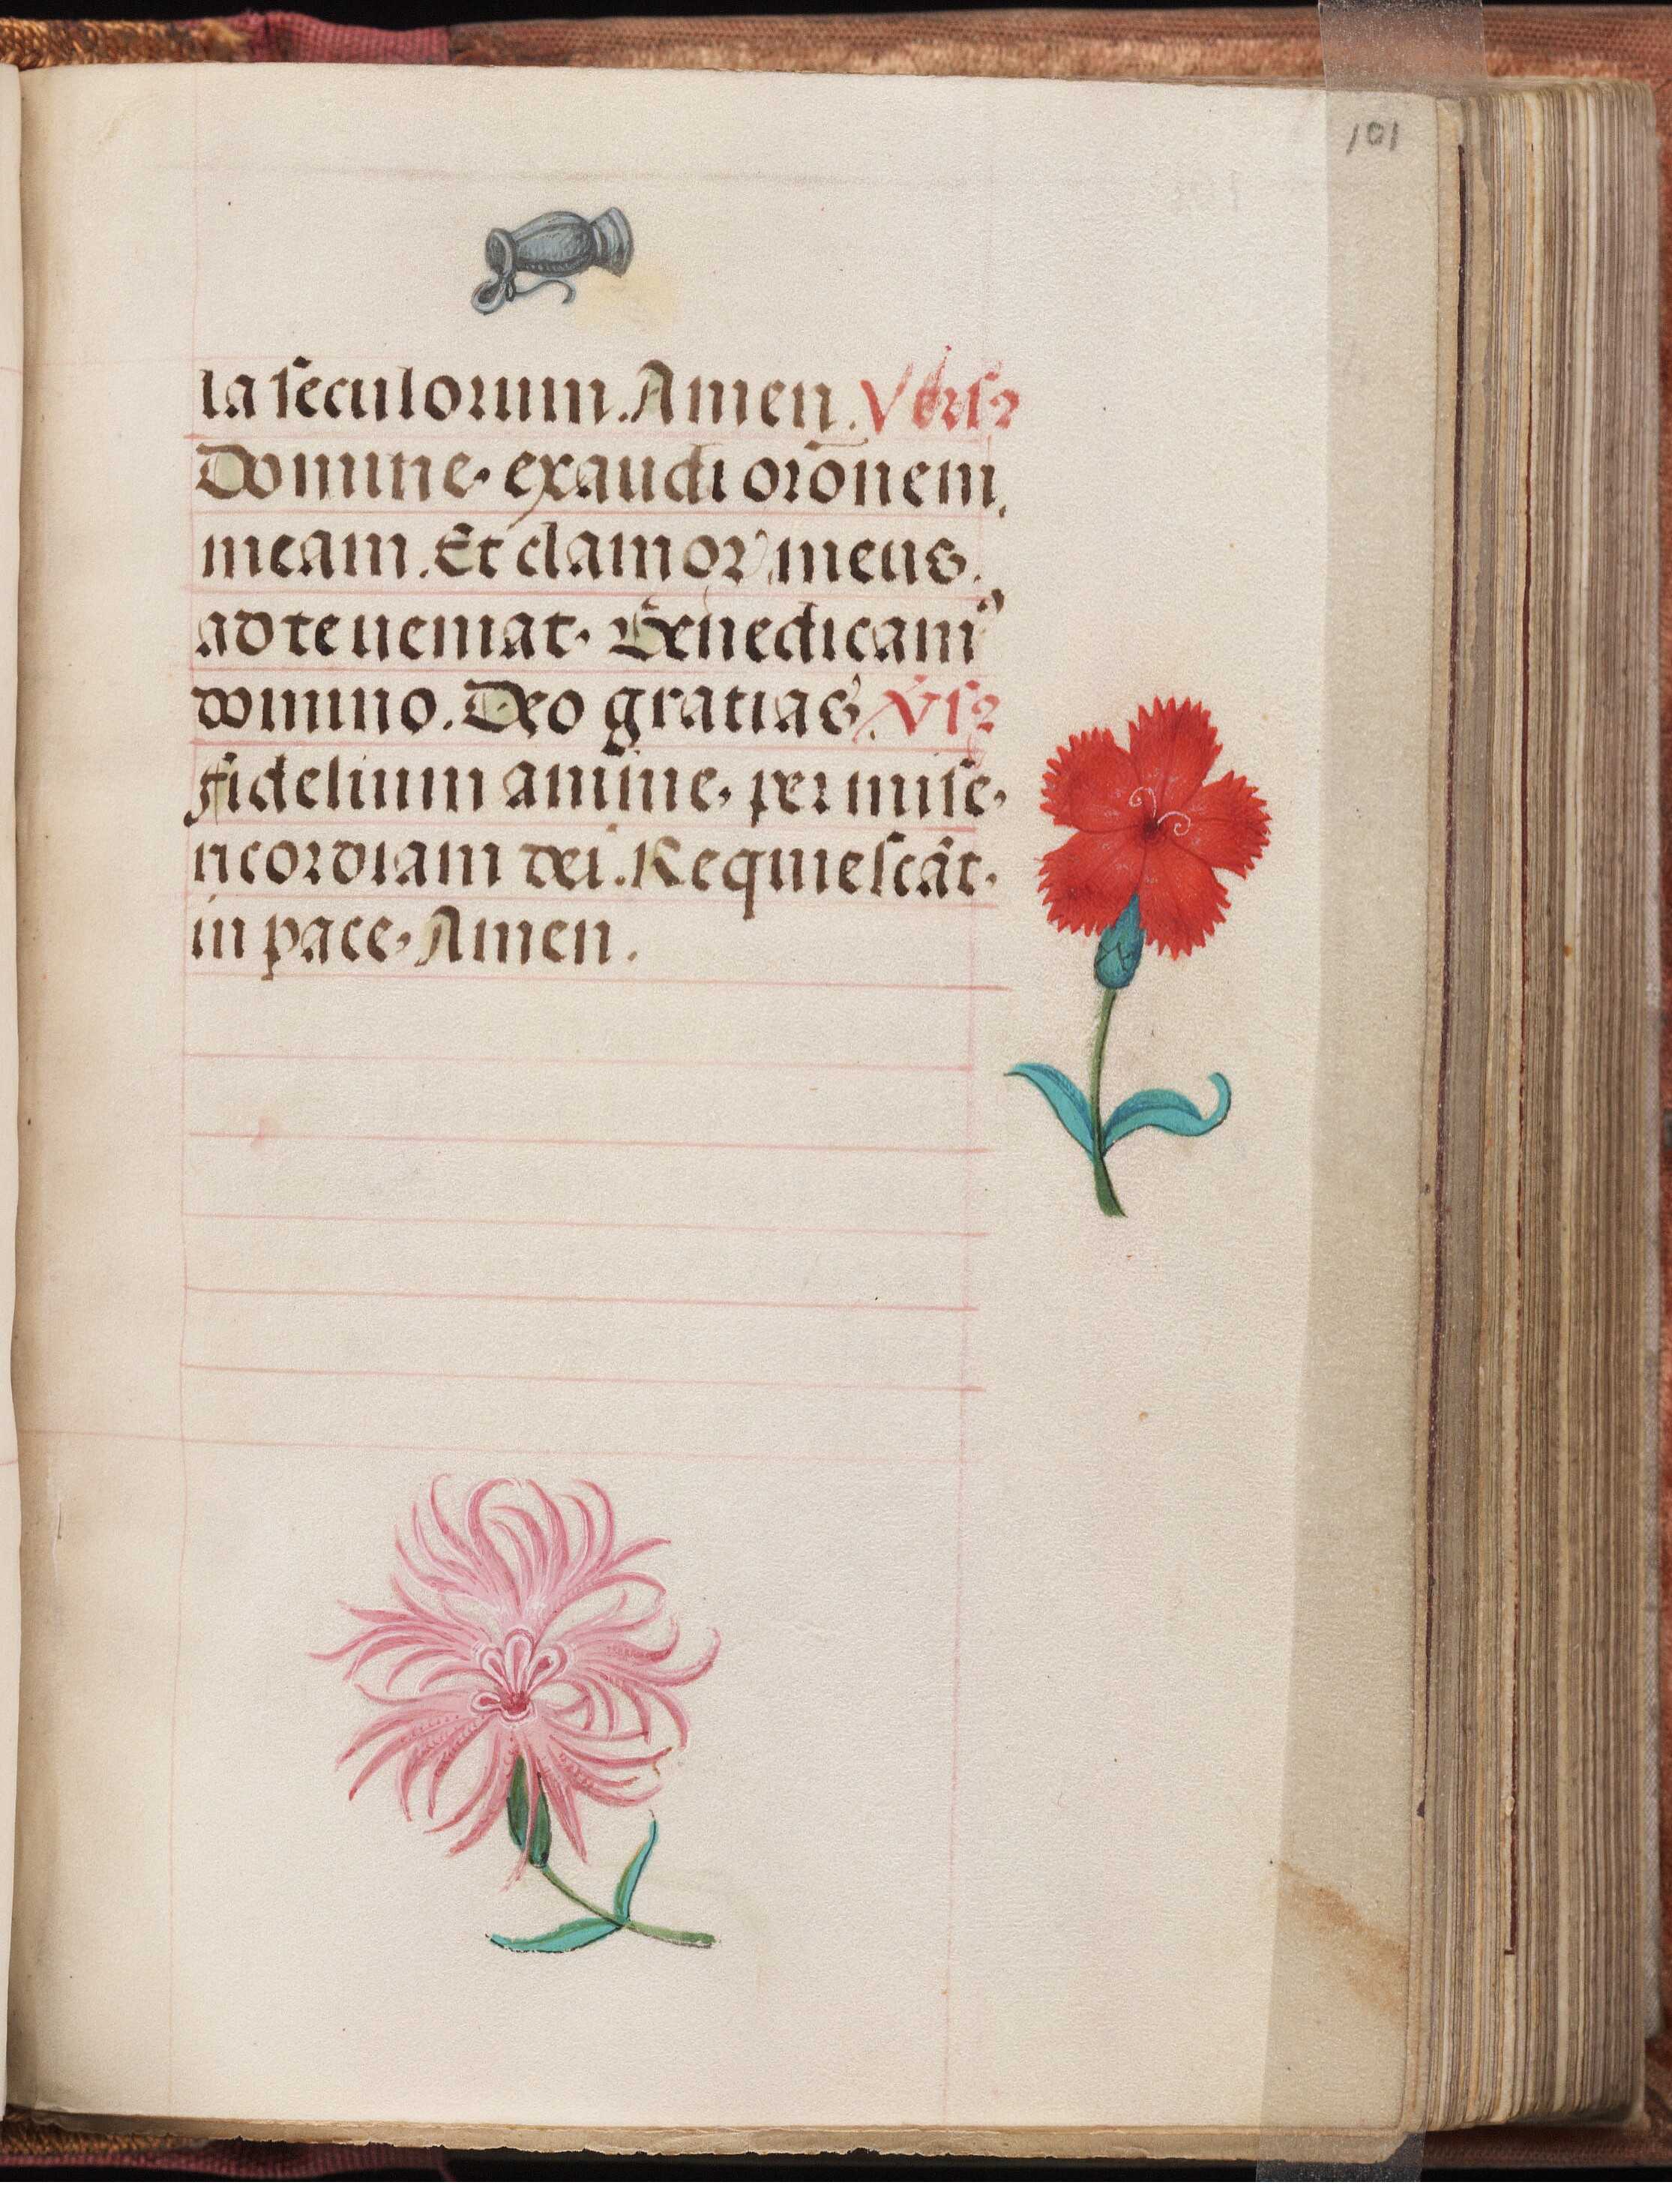 101
la seculorum. Amen. Vers
Domine. exaudi orōnem
meam. Et clamor meus.
ad te ueniat. Benedicam
domino. Deo gratias. Vs
fidelium anime. per mise
ricordiam dei. Requiescāt.
in pace. Amen.